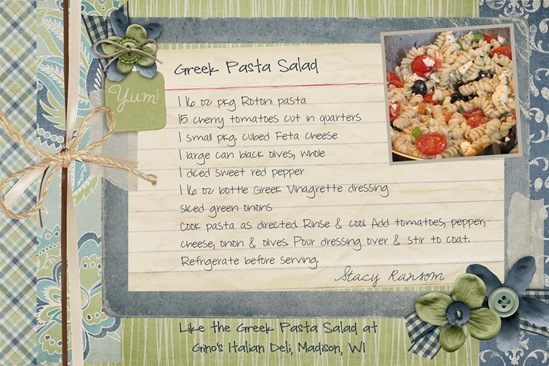 Greek Pasta Salad
Yum!
1 16 oz pkg Rotini pasta
15 cherry tomatoes cut in quarters
1 small pkg. cubed Feta cheese
1 large can black olives, whole
1 diced sweet red pepper
1 16 oz bottle Greek Vinagrette dressing
sliced green onions
Cook pasta as directed. Rinse & cool. Add tomatoes, pepper,
cheese, onion & olives. Pour dressing over & stir to coat.
Refrigerate before serving.
Stacy Ransom
Like the Greek Pasta Salad at
Gino's Italian Deli, Madison, WI